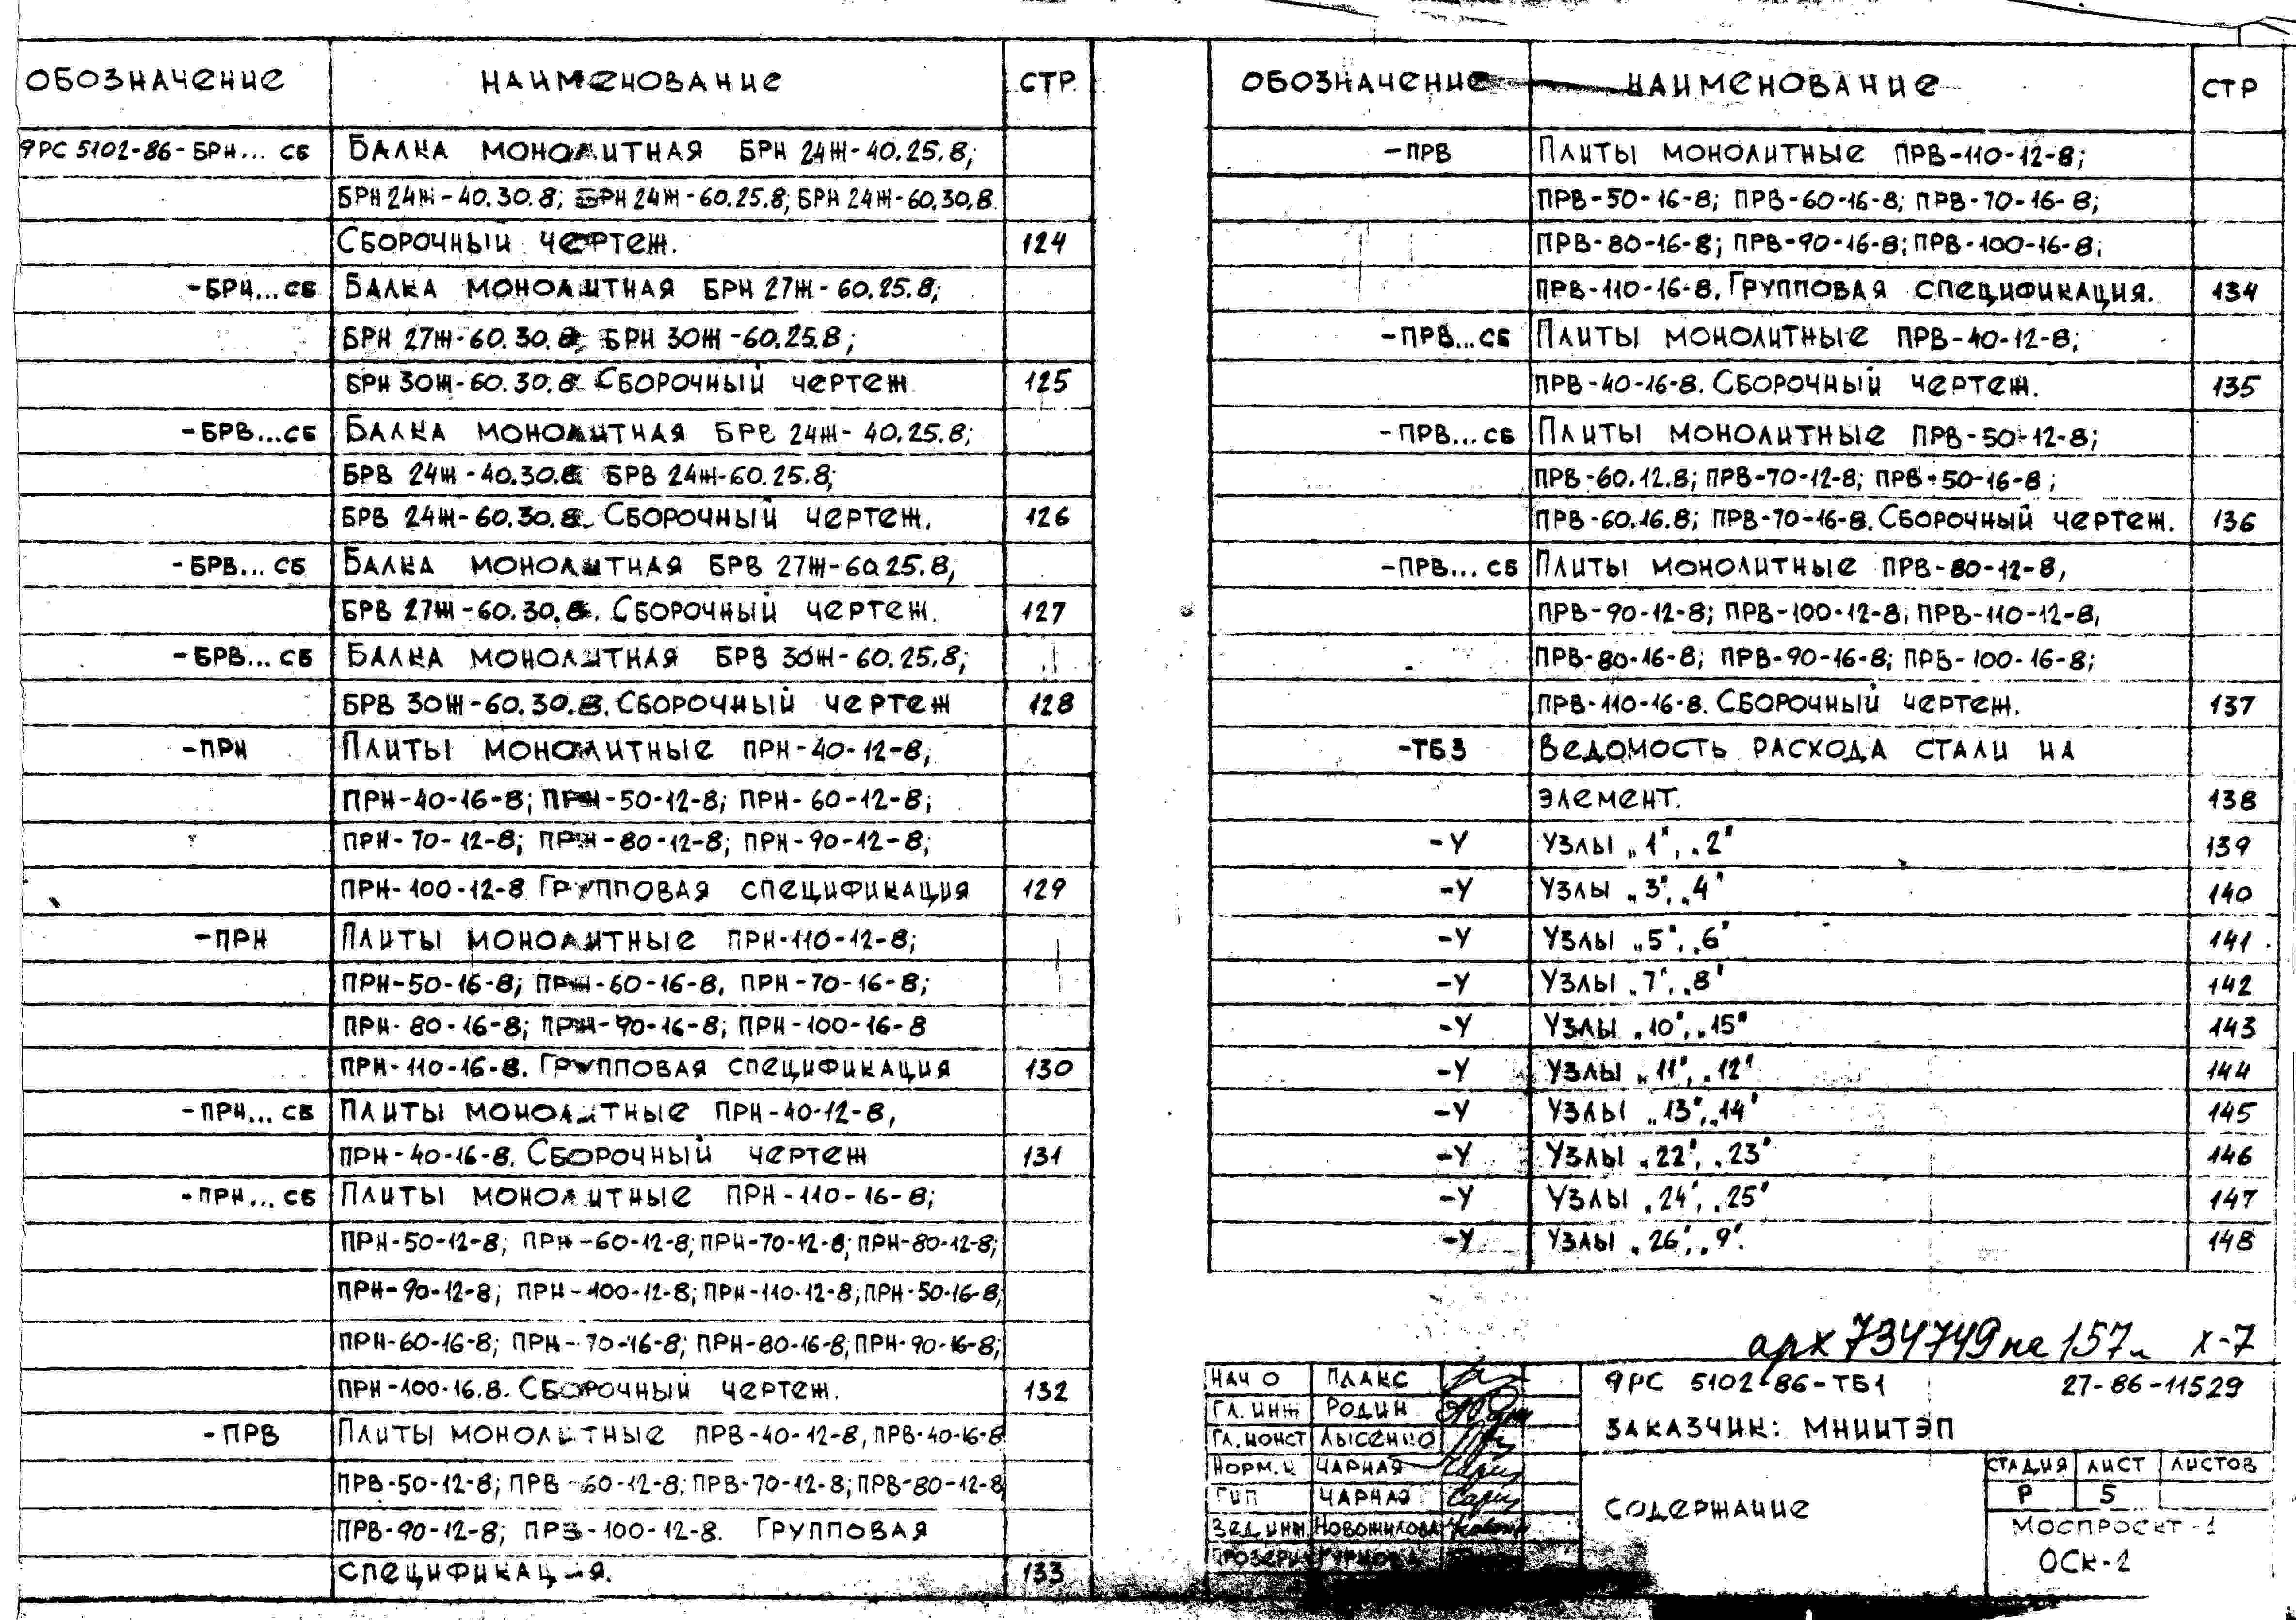 ОБОЗНАЧЕНИЕ НАИМЕНОВАНИЕ СТР
9РС 5102-86-БРН... СБ БАЛКА МОНОЛИТНАЯ БРН 24Ж-40.25.8;
БРН 24Ж-40.30.8; БРН 24Ж-60.25.8; БРН 24Ж-60.30.8.
СБОРОЧНЫЙ ЧЕРТЕЖ. 124
-БРН...СБ БАЛКА МОНОЛИТНАЯ БРН 27Ж-60.25.8;
БРН 27Ж-60.30.8; БРН 30Ж-60.25.8;
БРН 30Ж-60.30.8. СБОРОЧНЫЙ ЧЕРТЕЖ 125
-БРВ...СБ БАЛКА МОНОЛИТНАЯ БРВ 24Ж-40.25.8;
БРВ 24Ж-40.30.8 БРВ 24Ж-60.25.8;
БРВ 24Ж-60.30.8. СБОРОЧНЫЙ ЧЕРТЕЖ. 126
-БРВ... СБ БАЛКА МОНОЛИТНАЯ БРВ 27Ж-60.25.8,
БРВ 27Ж-60.30.8. СБОРОЧНЫЙ ЧЕРТЕЖ. 127
-БРВ... СБ БАЛКА МОНОЛИТНАЯ БРВ 30Ж-60.25.8;
БРВ 30Ж-60.30.8. СБОРОЧНЫЙ ЧЕРТЕЖ 128
-ПРН ПЛИТЫ МОНОЛИТНЫЕ ПРН-40-12-8;
ПРН-40-16-8; ПРН-50-12-8; ПРН-60-12-8;
ПРН-70-12-8; ПРН-80-12-8; ПРН-90-12-8;
ПРН-100-12-8 ГРУППОВАЯ СПЕЦИФИКАЦИЯ 129
-ПРН ПЛИТЫ МОНОЛИТНЫЕ ПРН-110-12-8;
ПРН-50-16-8; ПРН-60-16-8, ПРН-70-16-8;
ПРН-80-16-8; ПРН-90-16-8; ПРН-100-16-8
ПРН-110-16-8. ГРУППОВАЯ СПЕЦИФИКАЦИЯ 130
-ПРН... СБ ПЛИТЫ МОНОЛИТНЫЕ ПРН-40-12-8,
ПРН-40-16-8. СБОРОЧНЫЙ ЧЕРТЕЖ 131
-ПРН... СБ ПЛИТЫ МОНОЛИТНЫЕ ПРН-110-16-8;
ПРН-50-12-8; ПРН-60-12-8; ПРН-70-12-8; ПРН-80-12-8;
ПРН-90-12-8; ПРН-100-12-8; ПРН-110-12-8; ПРН-50-16-8;
ПРН-60-16-8; ПРН-70-16-8; ПРН-80-16-8; ПРН-90-16-8;
ПРН-100-16.8. СБОРОЧНЫЙ ЧЕРТЕЖ. 132
-ПРВ ПЛИТЫ МОНОЛИТНЫЕ ПРВ-40-12-8, ПРВ-40-16-8
ПРВ-50-12-8; ПРВ-60-12-8; ПРВ-70-12-8; ПРВ-80-12-8
ПРВ-90-12-8; ПРВ-100-12-8. ГРУППОВАЯ
СПЕЦИФИКАЦИЯ. 133
ОБОЗНАЧЕНИЕ НАИМЕНОВАНИЕ СТР
-ПРВ ПЛИТЫ МОНОЛИТНЫЕ ПРВ-110-12-8;
ПРВ-50-16-8; ПРВ-60-16-8; ПРВ-70-16-8;
ПРВ-80-16-8; ПРВ-90-16-8; ПРВ-100-16-8;
ПРВ-110-16-8. ГРУППОВАЯ СПЕЦИФИКАЦИЯ. 134
-ПРВ...СБ ПЛИТЫ МОНОЛИТНЫЕ ПРВ-40-12-8;
ПРВ-40-16-8. СБОРОЧНЫЙ ЧЕРТЕЖ. 135
-ПРВ... СБ ПЛИТЫ МОНОЛИТНЫЕ ПРВ-50-12-8;
ПРВ-60.12.8; ПРВ-70-12-8; ПРВ-50-16-8;
ПРВ-60.16.8; ПРВ-70-16-8. СБОРОЧНЫЙ ЧЕРТЕЖ. 136
-ПРВ... СБ ПЛИТЫ МОНОЛИТНЫЕ ПРВ-80-12-8,
ПРВ-90-12-8; ПРВ-100-12-8; ПРВ-110-12-8,
ПРВ-80-16-8; ПРВ-90-16-8; ПРВ-100-16-8;
ПРВ-110-16-8. СБОРОЧНЫЙ ЧЕРТЕЖ. 137
-ТБ3 ВЕДОМОСТЬ РАСХОДА СТАЛИ НА
ЭЛЕМЕНТ. 138
-У УЗЛЫ „1", „2" 139
-У УЗЛЫ „3", „4" 140
-У УЗЛЫ „5", „6" 141
-У УЗЛЫ „7", „8" 142
-У УЗЛЫ „10", „15" 143
-У УЗЛЫ „11", „12" 144
-У УЗЛЫ „13", „14" 145
-У УЗЛЫ „22", „23" 146
-У УЗЛЫ „24", „25" 147
-У УЗЛЫ „26", „9". 148
арх 734749 на 157л х-7
НАЧ О ПЛАКС
ГЛ. ИНЖ РОДИН
ГЛ. КОНСТ ЛЫСЕНКО
НОРМ.К ЧАРНАЯ
ГИП ЧАРНАЯ
ВЕД.ИНЖ НОВОЖИЛОВА
ПРОВЕРИЛ
9РС 5102-86-ТБ1 27-86-11529
ЗАКАЗЧИК: МНИИТЭП
СОДЕРЖАНИЕ
СТАДИЯ ЛИСТ ЛИСТОВ
Р 5
МОСПРОЕКТ-1
ОСК-2